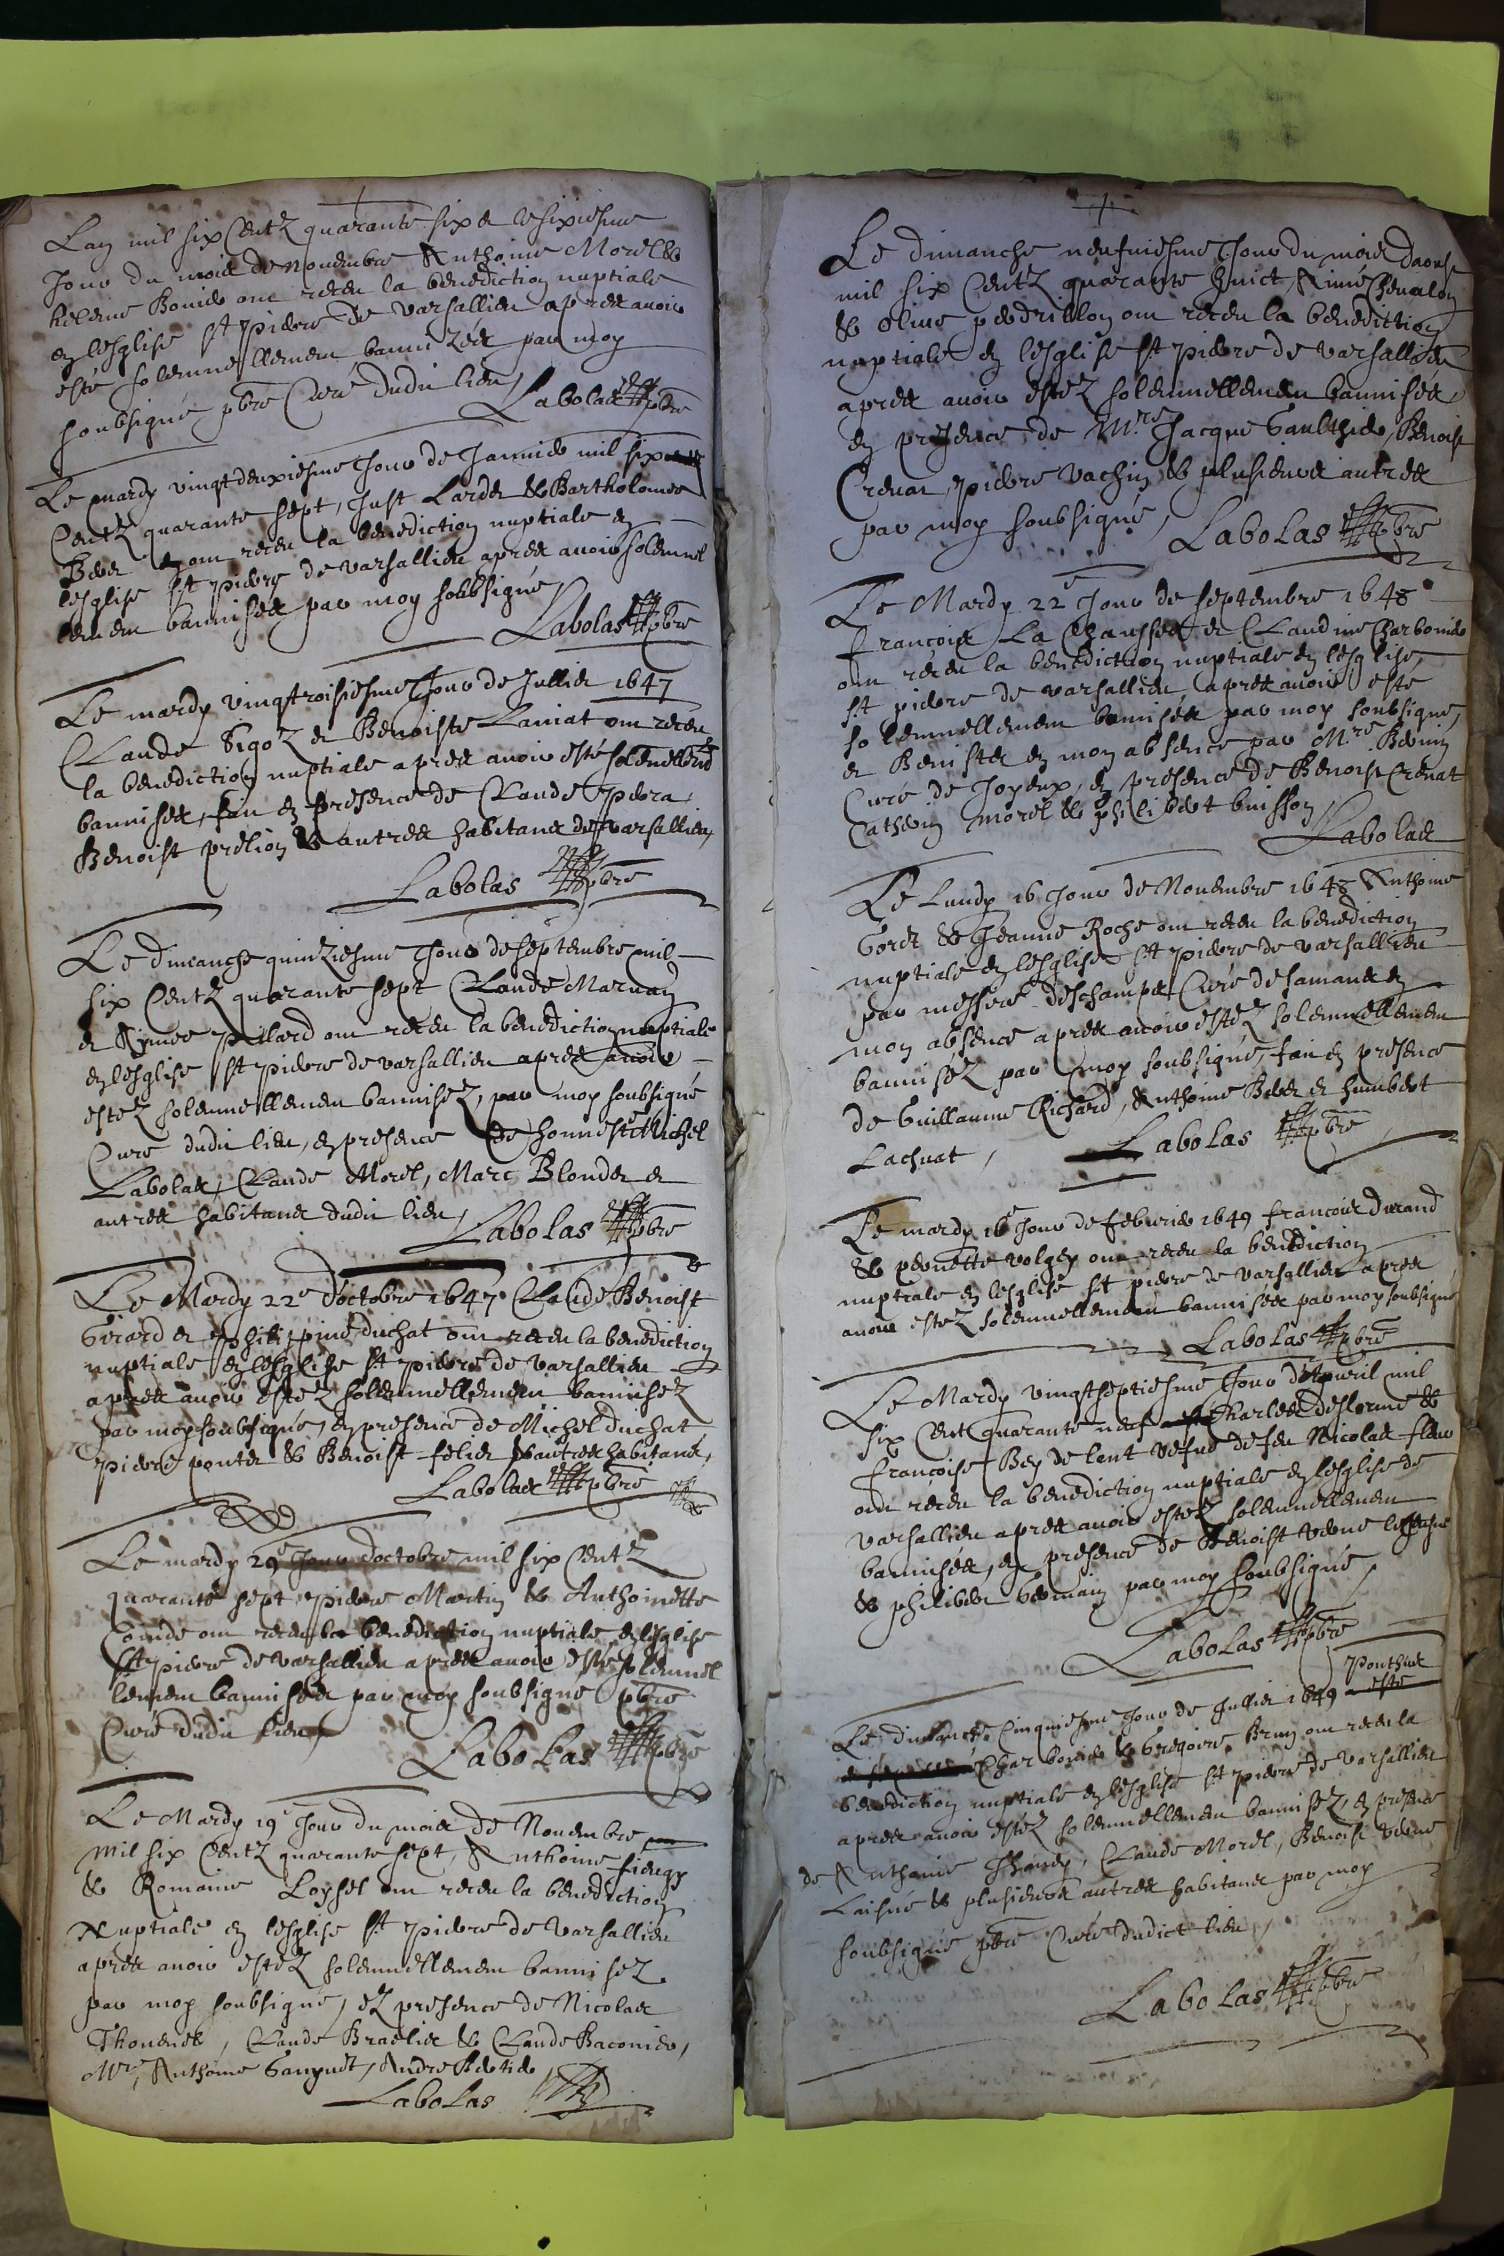 Lan mil six Centz quarante six & le sixiesme
Jour du mois de Novembre Anthoine Morel &
helene Bonier ont receu la benediction nuptiale
en lesglise St pierre de varsallieu apres avoir
esté solemnellement bannizés par moy
soubsigné pbre Curé dudit lieu,
Labolas pbre
Le mardy vingtdeuxiesme Jour de Janvier mil six
Centz quarante sept, Just Larder & Bartholomee
ont receu la benediction nuptiale en
lesglise St pierre de varsallieu apres avoir solemnel
lement bannises par moy soubsigné
Labolas pbre
Le mardy vingtroisiesme Jour de Jullier 1647
Claude Gigoz et Benoiste Laniat ont receu
la benediction nuptiale apres avoir esté solemnellemt
bannises, fait en presence de Claude
Benoist prelion & autres habitans de varsallieu,
Labolas pbre
Le dimanche quinziesme Jour de septembre mil
six Centz quarante sept Claude Marnay
et Aymee pillard ont receu la benediction nuptiale
en lesglise St pierre de varsallieu apres avoir
estez solemnellement bannisez, par moy soubsigné
Curé dudit lieu, en presence de honneste Michel
Labolas, Claude Morel, Marc Blonder et
autres habitans dudit lieu,
Labolas pbre
Le Mardy 22e doctobre 1647 Claude Benoist
Girard et Philippine duchat ont receu la benediction
nuptiale en lesglise St pierre de varsallieu
apres avoir estez solemnellement bannisez
par moy soubsigné, en presence de Michel duchat
pierre ponter & Benoist felier & autres habitans,
Labolas pbre
Le mardy 29e Jour doctobre mil six Centz
quarante sept, pierre Martin & Anthoinette
ont receu la benediction nuptiale en lesglise
St pierre de varsallieu apres avoir esté solemnel
lement bannises par moy soubsigné pbre
Curé dudit lieu,
Labolas pbre
Le Mardy 19e Jour du mois de Novembre
mil six Centz quarante sept, Anthoine
& Romaine Loysel ont receu la benediction
Nuptiale en lesglise St pierre de varsallieu
apres avoir estéz solemnellement bannisez
par moy soubsigné, en presence de Nicolas
Claude & Claude Baconier,
Mre, Anthoine Ganguet, André
Labolas
Le dimanche neufviesme Jour du mois daoust
mil six Centz quarante huict Aimé Chevalon
& olive perdrillon ont receu la benediction
nuptiale en lesglise St pierre de varsallieu
apres avoir estez solemnellement bannisés,
en presence de Mre Jacque Gaulthier, Benoist
Crenat, pierre vachin & plusieurs autres
par moy soubsigné,
Labolas pbre
Le Mardy 22e Jour de septembre 1648
françois La Chaussee et Claudine Charbonier
ont receu la benediction nuptiale en lesglise,
St pierre de varsallieu, apres avoir esté
solemnellement bannisés par moy soubsigné,
et Benistes en mon absence par Mre
Curé de Joyeux, en presence de Benoist Crenat
Catherin morel & philibert buisson,
Labolas
Le Lundy 16 Jour de Novembre 1648 Anthoine
Goret & Jeanne Roche ont receu la benediction
nuptiale en lesglise St pierre de varsallieu
par messire deschamps Curé de samans en
mon absence apres avoir estéz solemnellement
bannisez par moy soubsigné, fait en presence
de Guillaume Richard, Anthoine et humbert
Lachuat,
Labolas pbre
Le mardy 16e Jour de febvrier 1649 francois durand
& pernette volgey ont receu la benediction
nuptiale en lesglise St pierre de varsallieu apres
avoir estez solemnellement bannises par moy soubsigné
Labolas pbre
Le Mardy vingtseptiesme Jour d'Apvril mil
six Cent quarante neuf Charles deslorme &
françoise Bey de lent vefve de feu Nicolas
ont receu la benediction nuptiale en lesglise de
varsallieu apres avoir estéz solemnellement
bannisés, en presence de Benoist verne
& philiber par moy soubsigné,
Labolas pbre
Ponthus
Le dimanche Cinquiesme Jour de Jullier 1649
Charbonier & Gregoire Brun ont receu la
benediction nuptiale en lesglise St pierre de varsallieu
apres avoir estéz solemnellement bannisez, en presence
de Anthoine Claude Morel, Benoist verne
Laisné & plusieurs autres habitans par moy
soubsigné pbre Curé dudict lieu,
Labolas pbre